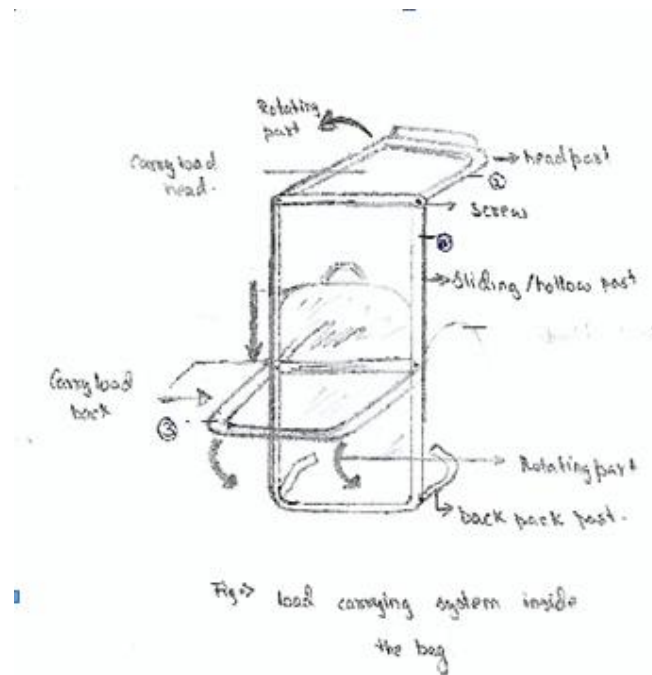 Rotating
part
Carry load
head.
head part
②
Screw
Sliding/hollow part
Carry load
back
③
Rotating part
back pack part.
Fig:-> load carrying system inside
the bag